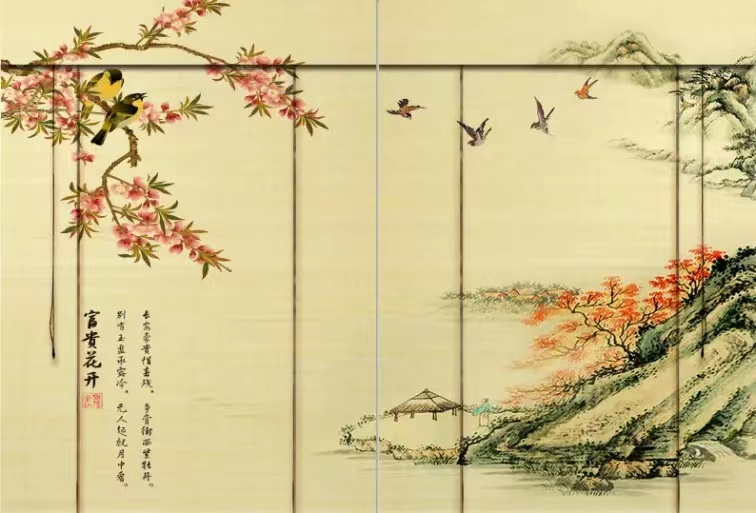 长安豪貴惜春残、争賞街西紫牡丹。
别有玉盘承露冷、无人起就月中看。
富貴花开